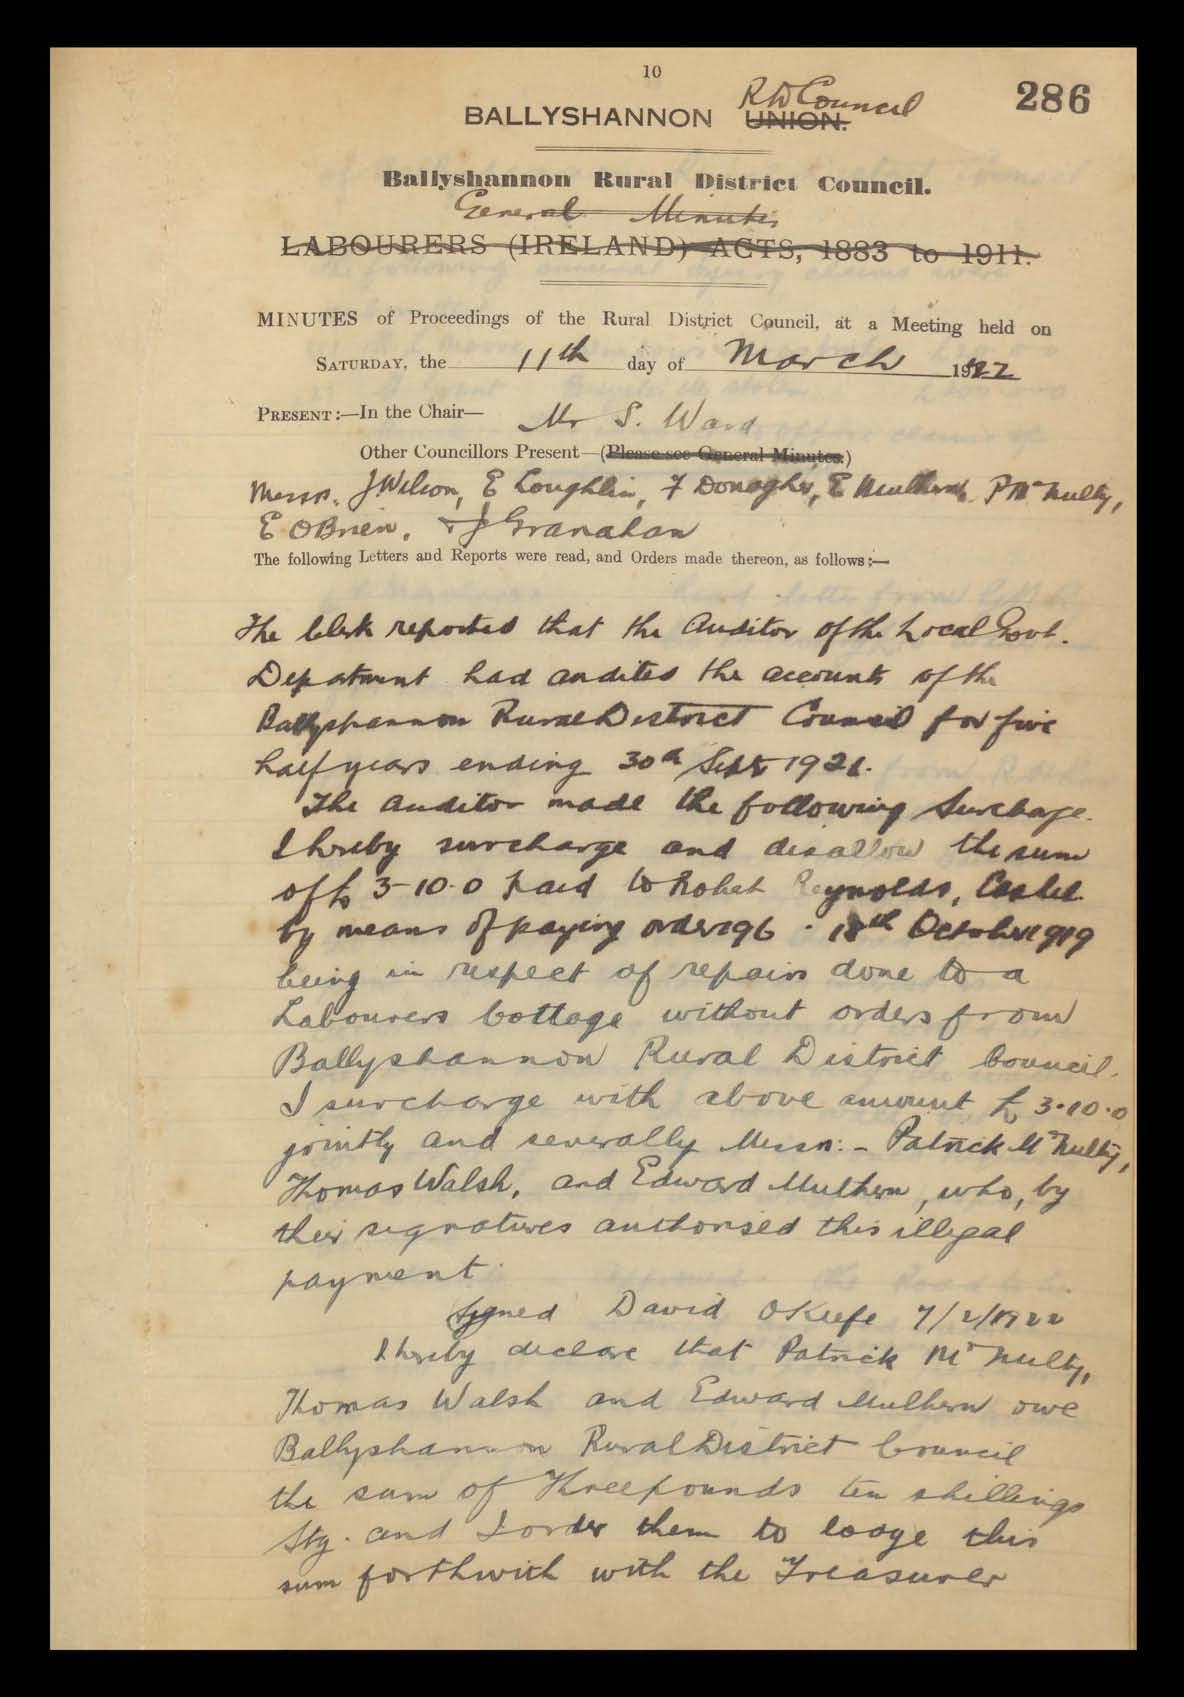 10
286
BALLYSHANNON UNION. RD Council
Ballyshannon Rural District Council.
General Minutes
LABOURERS (IRELAND) ACTS, 1883 to 1911.
MINUTES of Proceedings of the Rural District Council, at a Meeting held on
SATURDAY, the 11th day of March 1922
PRESENT:—In the Chair— Mr S. Ward
Other Councillors Present—(Please see General Minutes.)
Messrs. J Wilson, E Loughlin, F Donagher, E Mulhern, P McNulty,
E OBrien, & J Granahan
The following Letters and Reports were read, and Orders made thereon, as follows:—
The Clerk reported that the Auditor of the Local Govt.
Depatment had audited the accounts of the
Ballyshannon Rural District Council for five
half years ending 30th Sept 1921.
The Auditor made the following Surchage.
I hereby surcharge and disallow the sum
of £3-10-0 paid to Robert Reynolds,
by means of paying order 196 - 18th October 1919
being in respect of repairs done to a
Labourers Cottage without orders from
Ballyshannon Rural District Council.
I surcharge with above amount £3-10-0
jointly and severally Messrs:- Patrick McNulty,
Thomas Walsh, and Edward Mulhern, who, by
their signatures authorised this illegal
payment.
Signed David OKeefe 7/2/1922
I hereby declare that Patrick McNulty,
Thomas Walsh and Edward Mulhern owe
Ballyshannon Rural District Council
the sum of Three pounds ten shillings
Stg. and I order them to lodge this
sum forthwith with the Treasurer